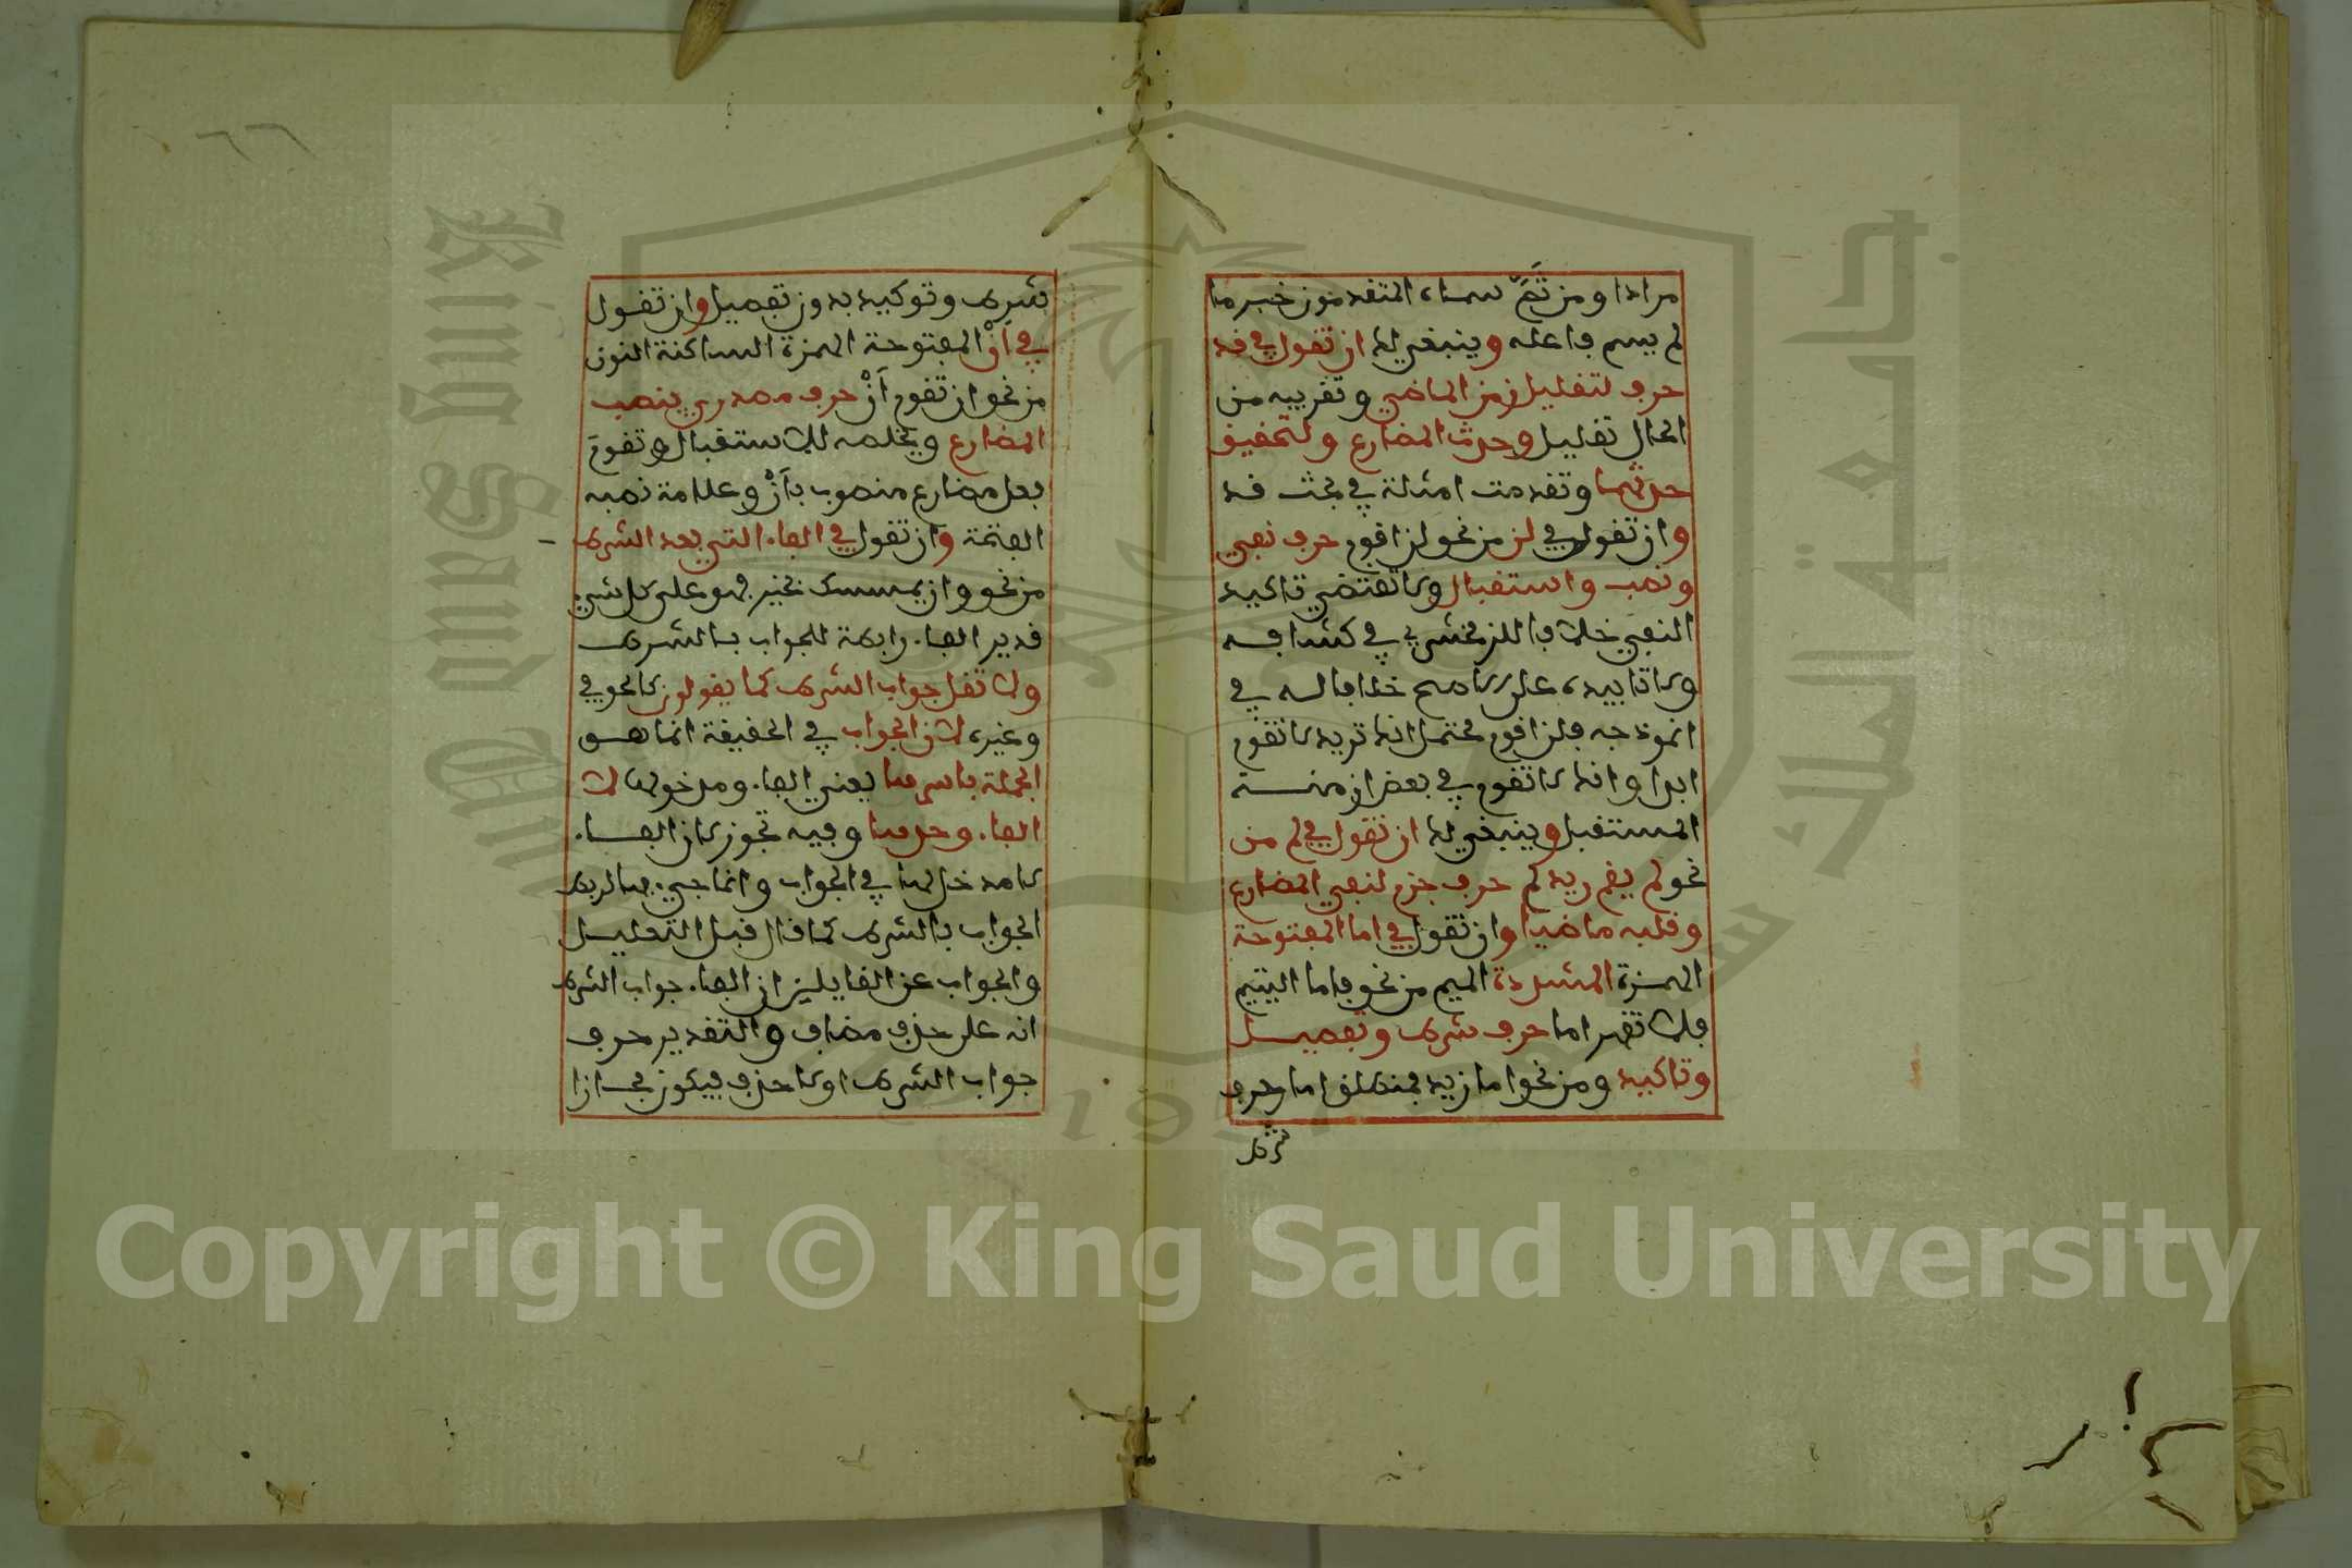 مرادا ومن ثَمَّ سماه المتقدمون خبر ما
لم يسم فاعله وينبغي لك ان تقول في قد
حرف لتقليل زمن الماضي وتقريبه من
الحال تقليل وحدث المضارع ولتحقيق
حدثهما وتقدمت امثلة في بحث قد
وان تقول في لن من نحو لن اقوم حرف نفي
ونصب واستقبال ولا تقتضي تاكيد
النفي خلافا للزمخشري في كشافه
ولا تابيده على الاصح خلافا له في
انموذجه فلن اقوم محتمل انك تريد لا تقوم
ابدا وانك لا تقوم في بعض ازمنة
المستقبل وينبغي لك ان تقول في لم من
نحو لم يقم زيد لم حرف جزم لنفي المضارع
وقلبه ماضيا وان تقول في اما المفتوحة
الهمزة المشددة الميم من نحو فاما اليتيم
فلا تقهر اما حرف شرط وتفصيل
وتاكيد ومن نحو اما زيد فمنطلق اما حرف
شرط
٦٦
شرط وتوكيد بدون تفصيل وان تقول
في أنْ المفتوحة الهمزة الساكنة النون
من نحو ان تقوم أنْ حرف مصدري ينصب
المضارع ويخلصه للاستقبال وتقومَ
فعل مضارع منصوب بأنْ وعلامة نصبه
الفتحة وان تقول في الفاء التي بعد الشرط
من نحو وان يمسسك بخير فهو على كل شيء
قدير الفاء رابطة للجواب بالشرط
ولا تقل جواب الشرط كما يقولون كالحوفي
وغيره لان الجواب في الحقيقة انما هو
الجملة باسرها يعني الفاء ومدخولها لا
الفاء وحدها وفيه تجوز لان الفاء
لا مدخل لها في الجواب وانما جيء بها لربط
الجواب بالشرط كما قال قبل التعليل
والجواب عن القايلين ان الفاء جواب الشرط
انه على حذف مضاف والتقدير حرف
جواب الشرط او لا حذف فيكون مجازا
Copyright © King Saud University
جامعة الملك سعود
King Saud University
1957